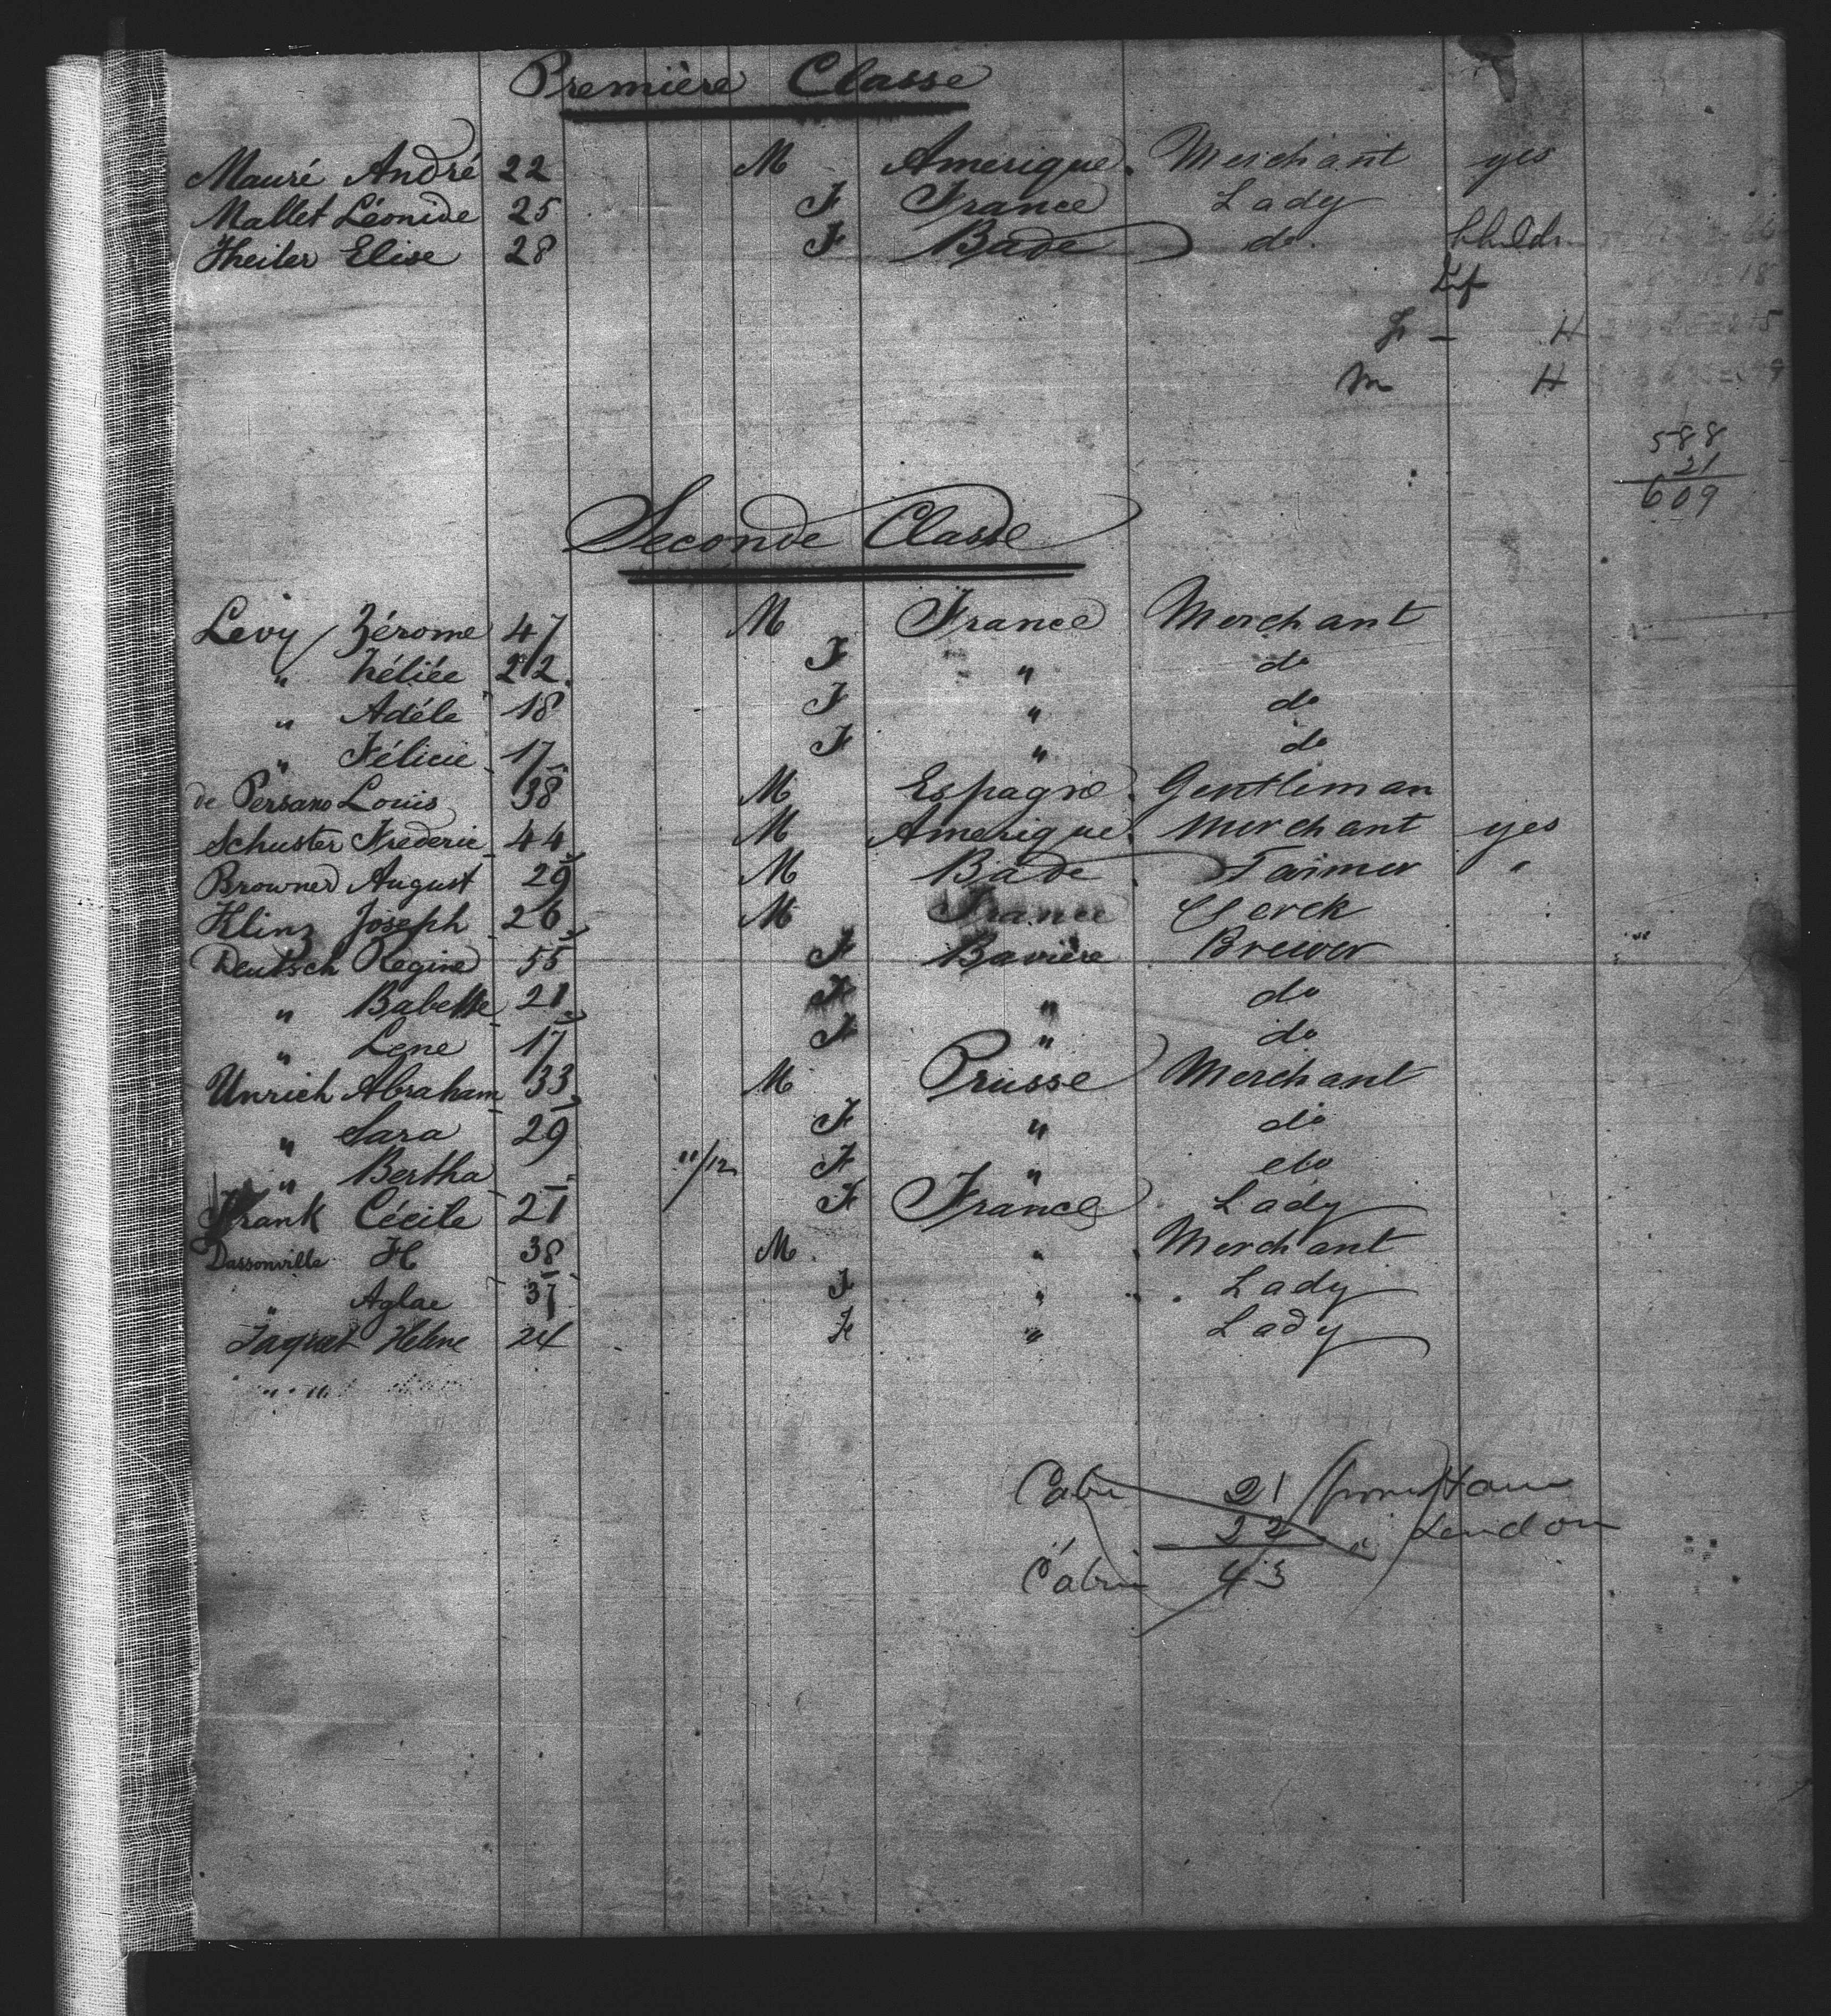 Première Classe
Mauré André 22 M Amerique. Merchant yes
Mallet Léonide 25 F France Lady
Theiler Elise 28 F Bade do.
F -
M
588
21
609
Seconde Classe
Levy Zérome 47 M France Merchant
" 22 F " do
" Adéle 18 F " do
" Félicie 17 F " do
de Persano Louis 38 M Espagne. Gentleman
Schuster Frederic 44 M Amerique. Merchant yes
Browned August 29 M Bade Farmer "
Klinz Joseph 26 M France Clerck
Deutsch Regine 55 F Bavière Brewer
" Babette 21 F " do
" Lene 17 F " do
Unrich Abraham 33 M Prusse Merchant
" Sara 29 F " do
" Bertha 11/12 F " do
Frank Cécile 21 F France Lady
Dassonville H 38 M " Merchant
" Aglae 37 F " Lady
Jaquet Helene 24 F " Lady
21 from Havre
22 " London
Cabin 43